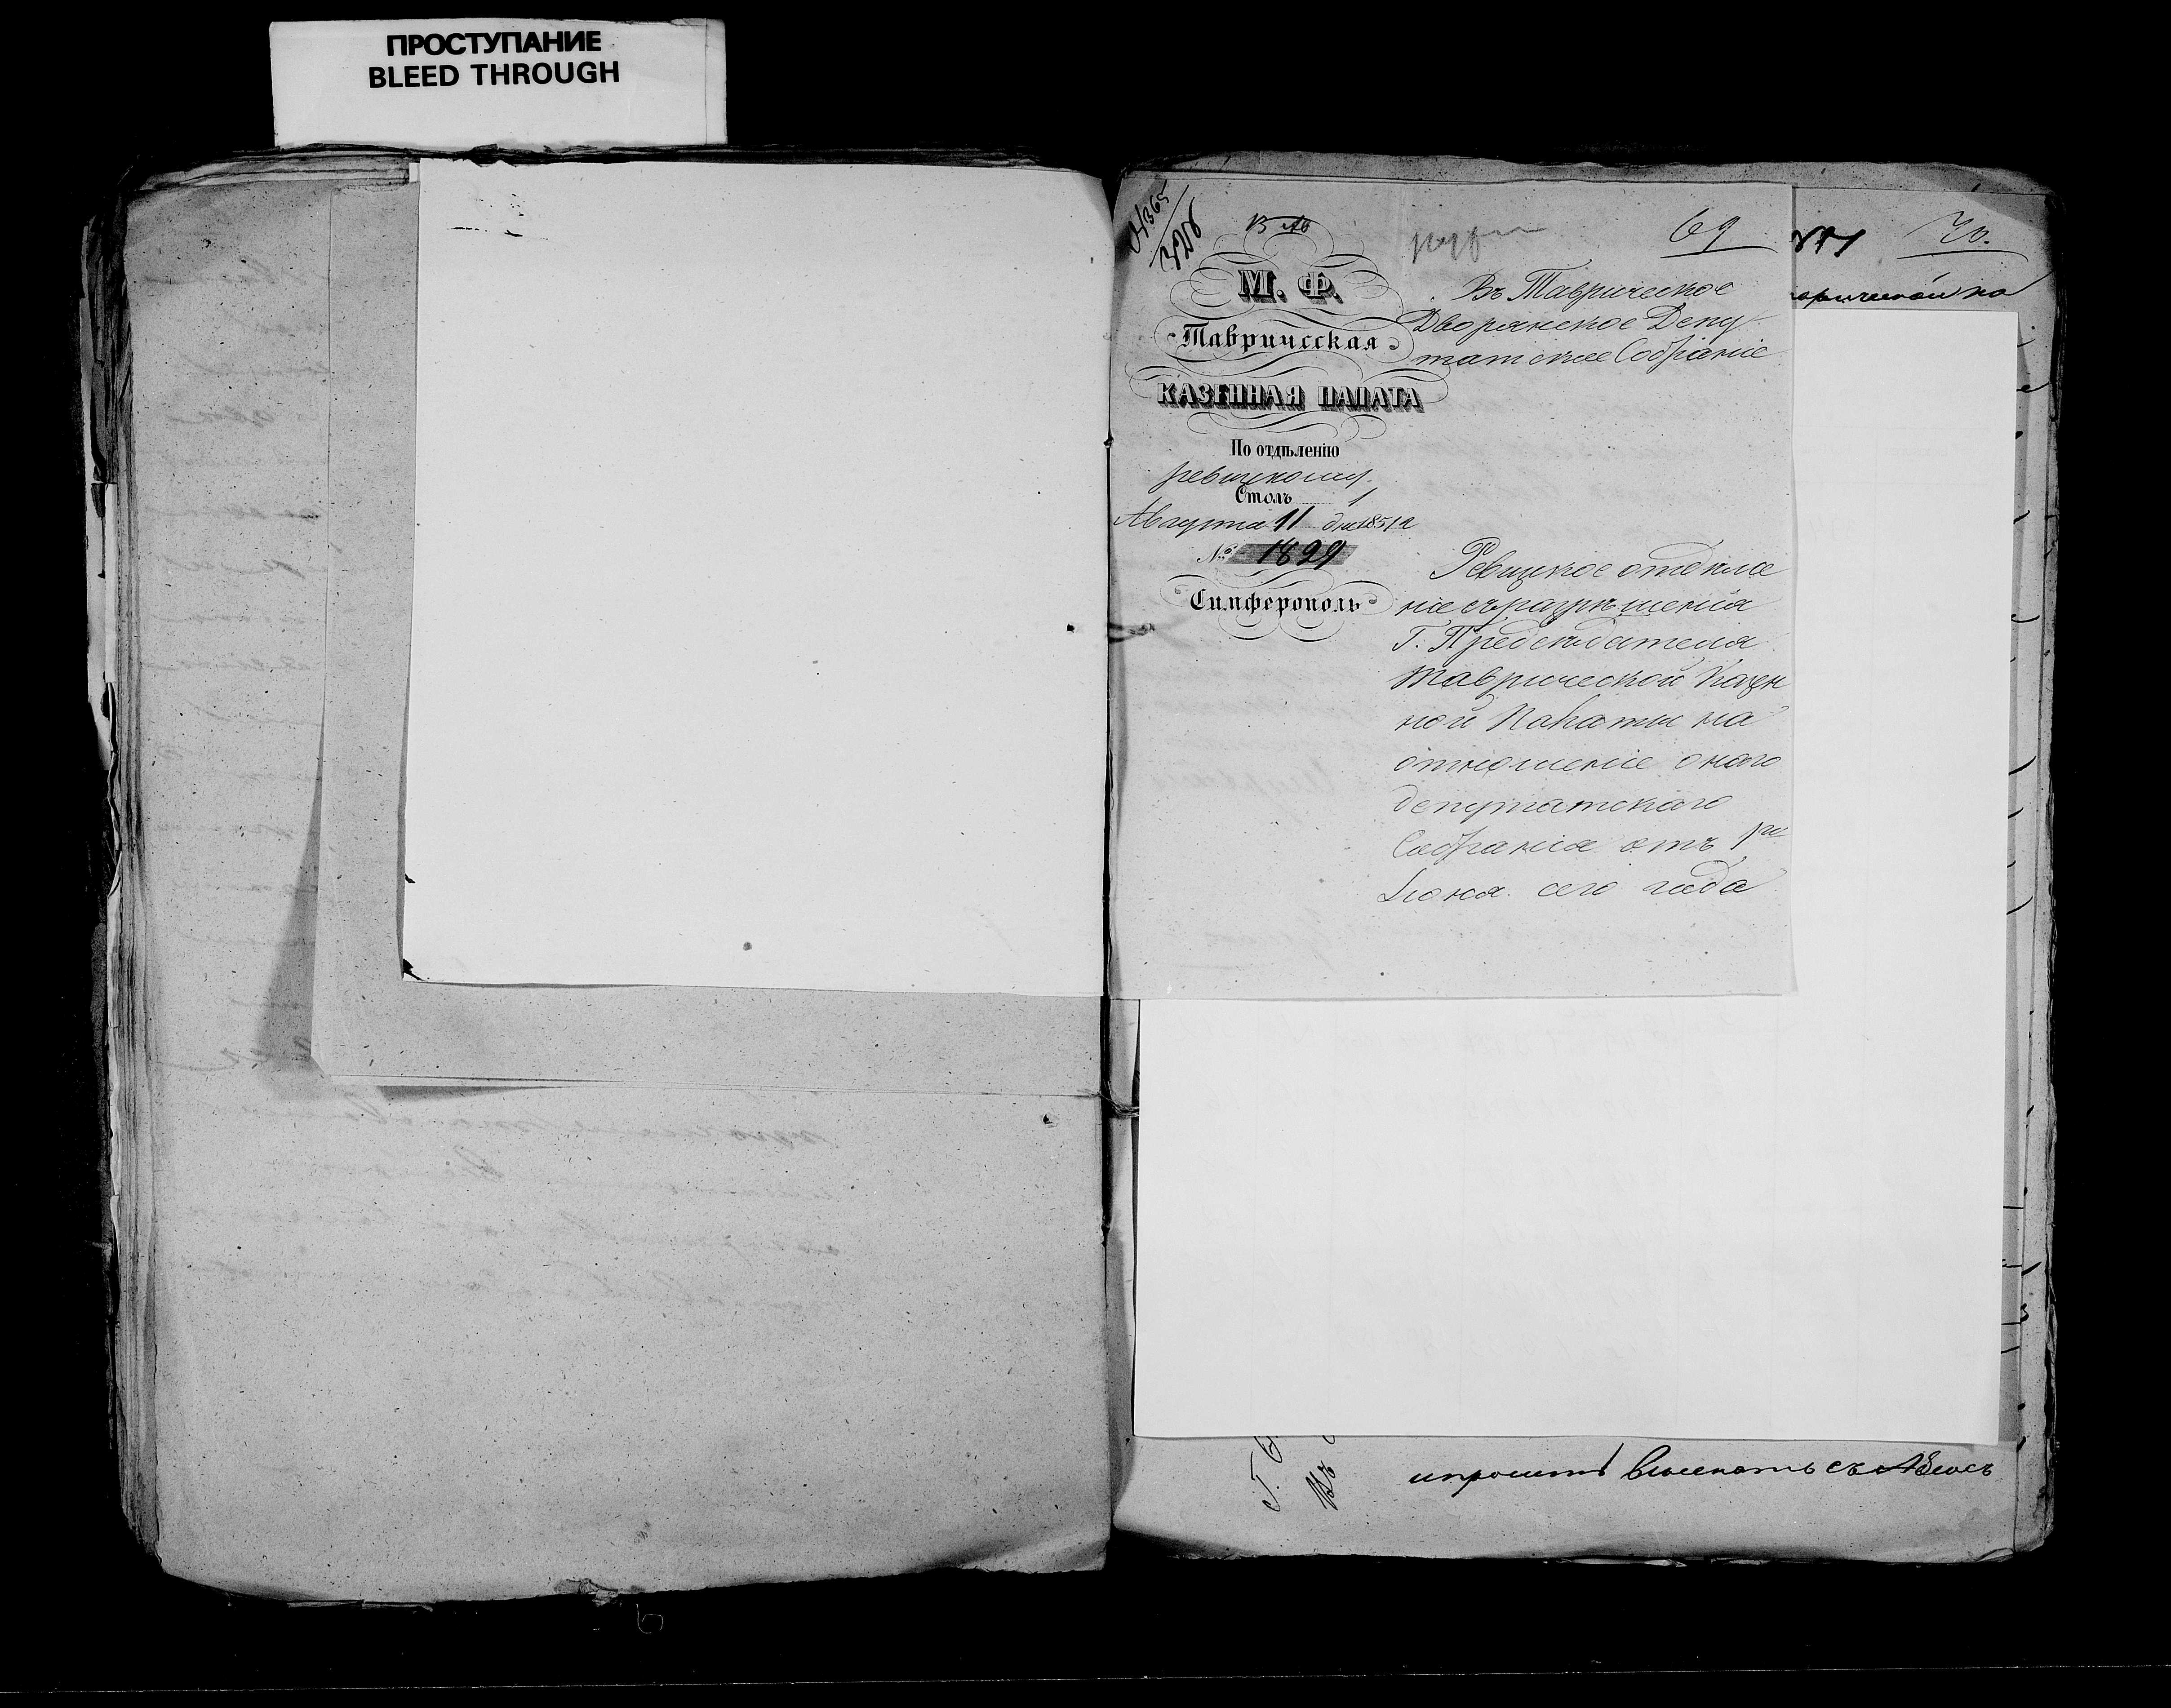 ПРОСТУПАНИЕ
BLEED THROUGH
69
70.
М. Ф.
Таврическая
КАЗЕННАЯ ПАЛАТА
По отдѣленію
ревизскому
Столъ 1
Августа 11 дня 1851 г
№ 1899
Симферополь
Въ Таврическое
Дворянское Депу
татское Собраніе
Ревизкое отдѣле
ніе съ разрѣшенія
Г. Предсѣдателя
Таврической Казен
ной Палаты на
отношеніе онаго
депутатскаго
Собранія отъ
Іюня сего года
взыскать съ